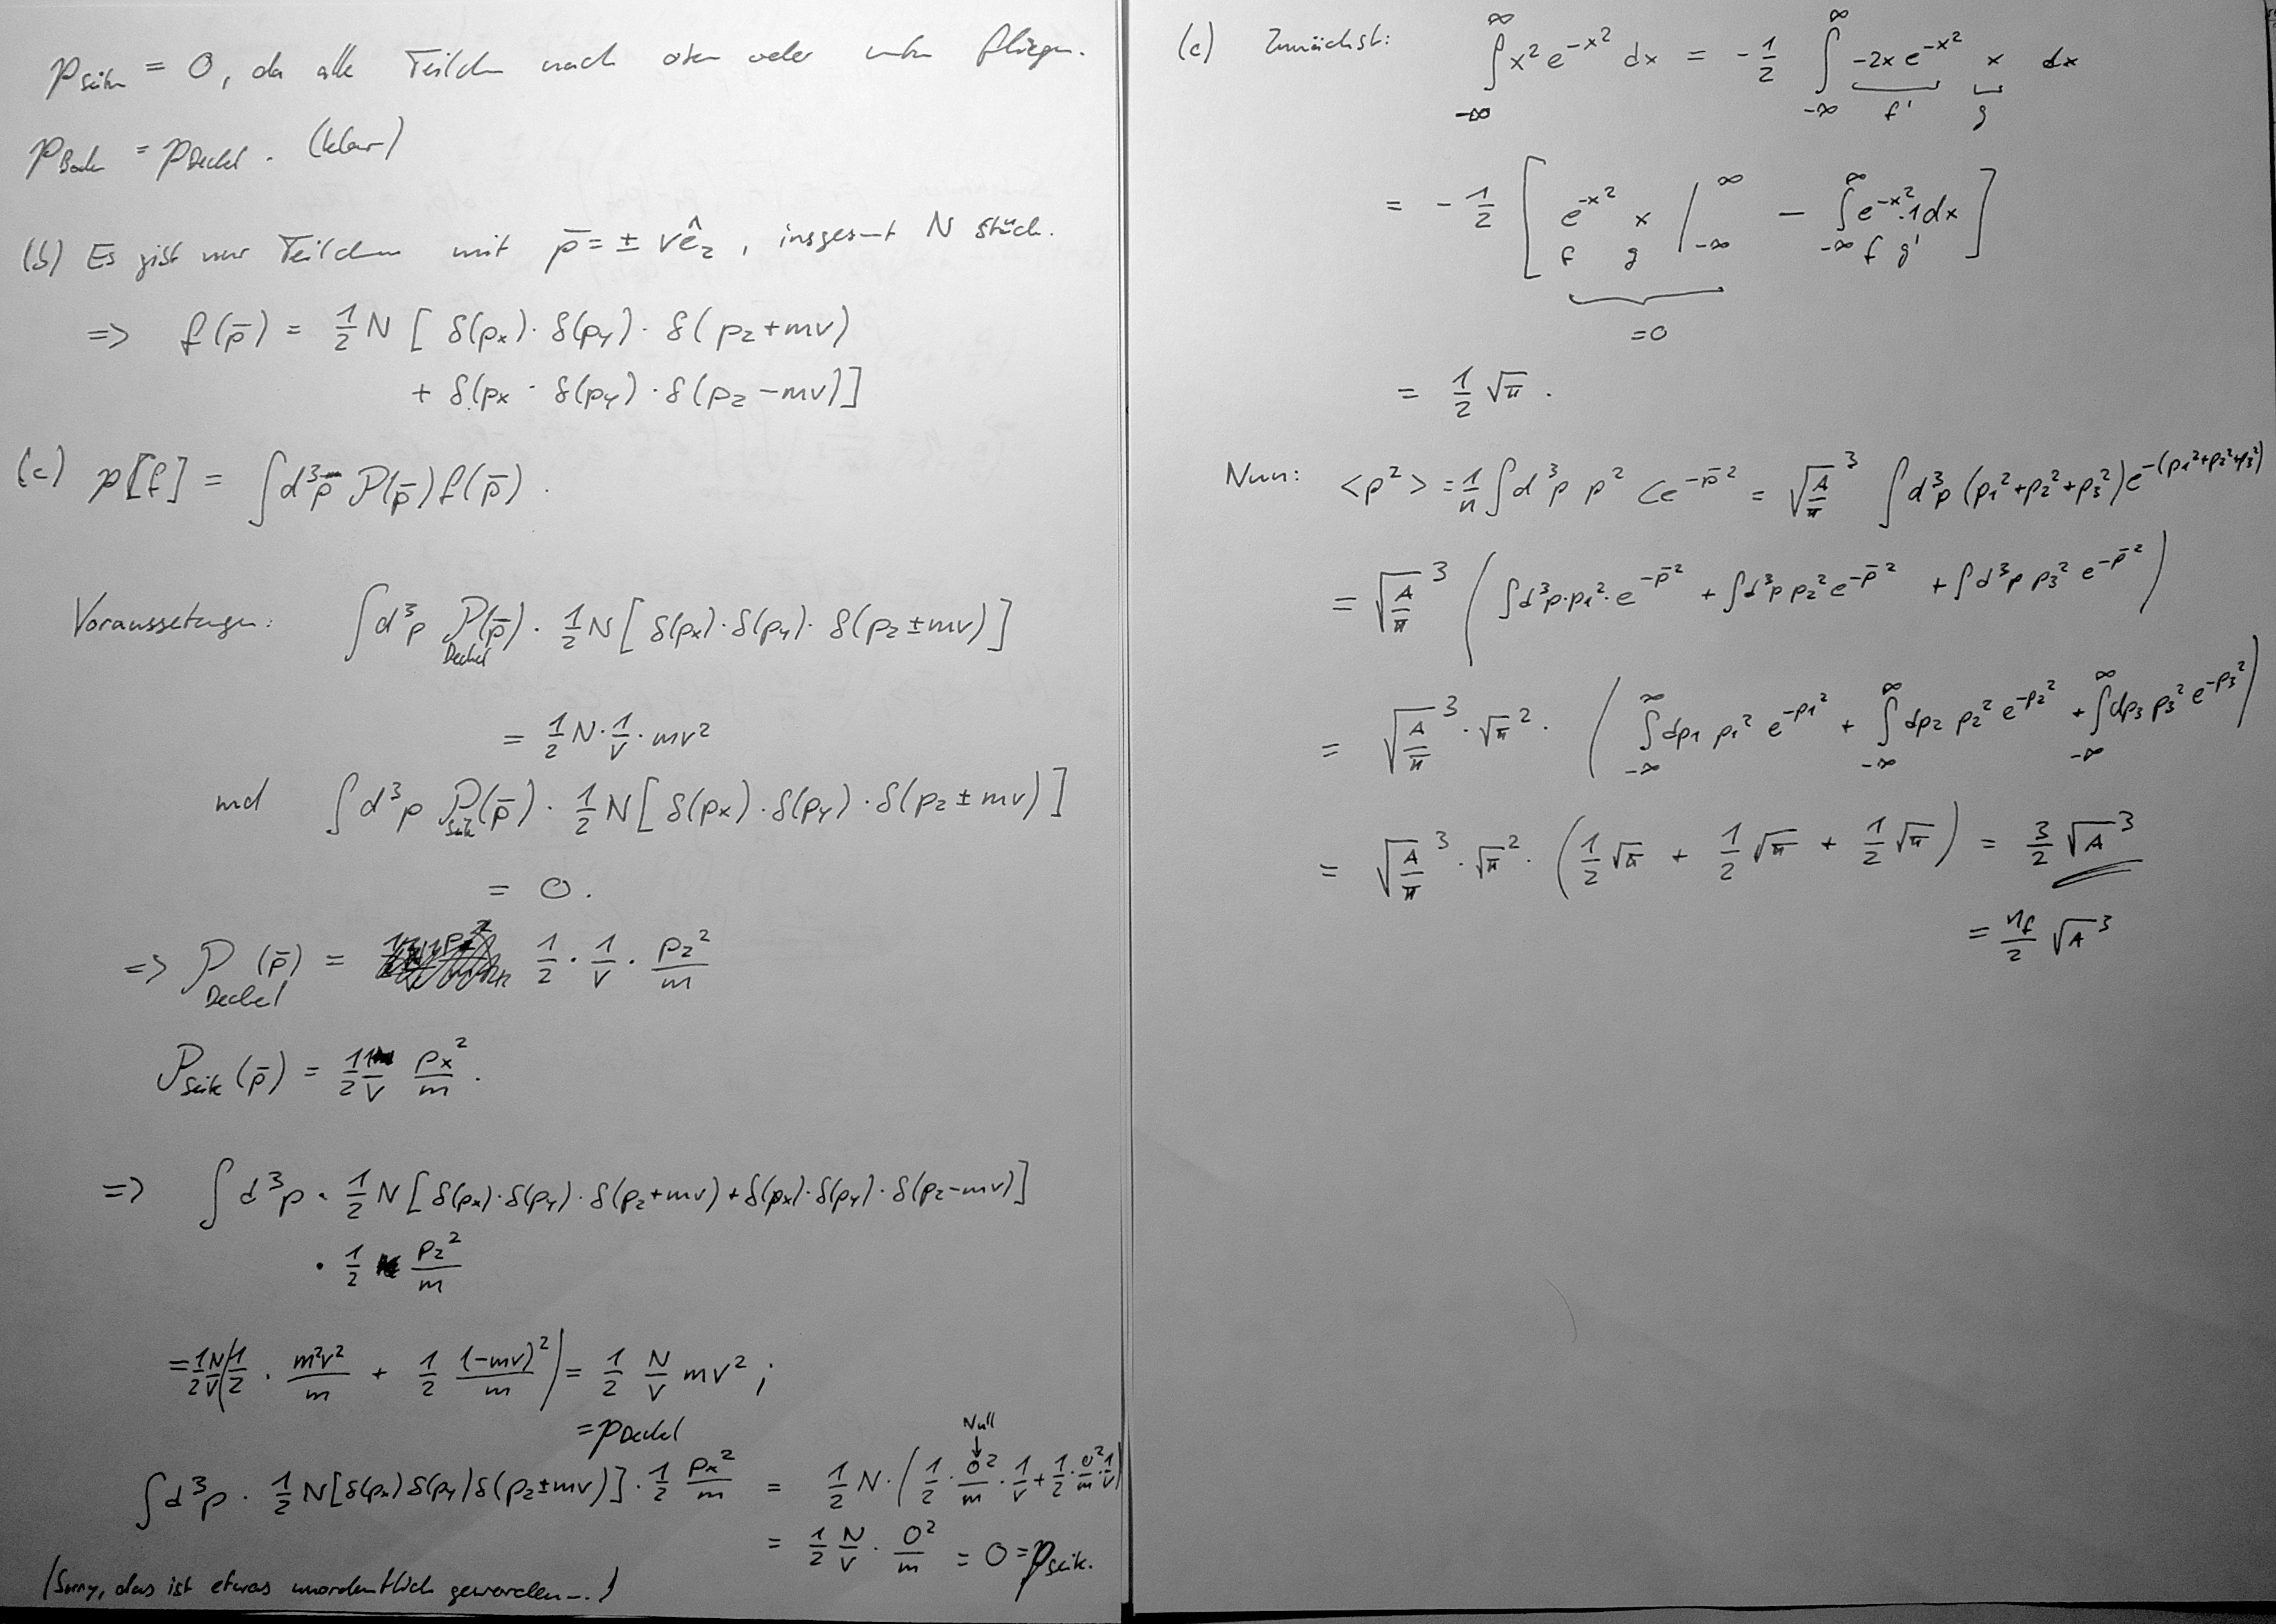 p_Seite = 0, da alle Teilchen nach oben oder unten fliegen.
p_Boden = p_Deckel. (klar)
(b) Es gibt nur Teilchen mit p̄ = ± vê_z, insgesamt N Stück.
=> f(p̄) = 1/2 N [ δ(p_x)·δ(p_y)·δ(p_z+mv)
+ δ(p_x · δ(p_y)·δ(p_z−mv)]
(c) p[f] = ∫d³p̄ P(p̄)f(p̄).
Voraussetzungen: ∫d³p P_Deckel(p̄)· 1/2 N[δ(p_x)·δ(p_y)·δ(p_z±mv)]
= 1/2 N · 1/V · mv²
und ∫d³p P_Seite(p̄)· 1/2 N[δ(p_x)·δ(p_y)·δ(p_z±mv)]
= 0.
=> P_Deckel(p̄) = 1/2 · 1/V · p_z²/m
P_Seite(p̄) = 1/2 1/V p_x²/m.
=> ∫d³p · 1/2 N[δ(p_x)·δ(p_y)·δ(p_z+mv)+δ(p_x)·δ(p_y)·δ(p_z−mv)]
· 1/2 p_z²/m
= 1/2 N/V (1/2 · m²v²/m + 1/2 (−mv)²/m) = 1/2 N/V mv² ;
= p_Deckel
Null
↓
∫d³p · 1/2 N[δ(p_x)δ(p_y)δ(p_z±mv)]· 1/2 p_x²/m = 1/2 N·(1/2 · 0²/m · 1/V + 1/2 · 0²/m · 1/V)
= 1/2 N/V · 0²/m = 0 = p_Seite.
(Sorry, das ist etwas unordentlich geworden...)
(c) Zunächst: ∫_{-∞}^{∞} x² e^{-x²} dx = −1/2 ∫_{-∞}^{∞} −2x e^{-x²} x dx
f' g
= −1/2 [ e^{-x²} x |_{-∞}^{∞} − ∫_{-∞}^{∞} e^{-x²}·1dx ]
f g f g'
=0
= 1/2 √π.
Nun: <p²> = 1/n ∫d³p p² C e^{-p̄²} = √(A/π)³ ∫d³p (p₁²+p₂²+p₃²)e^{-(p₁²+p₂²+p₃²)}
= √(A/π)³ (∫d³p·p₁²·e^{-p̄²} + ∫d³p p₂² e^{-p̄²} + ∫d³p p₃² e^{-p̄²})
= √(A/π)³ · √π² · (∫_{-∞}^{∞} dp₁ p₁² e^{-p₁²} + ∫_{-∞}^{∞} dp₂ p₂² e^{-p₂²} + ∫_{-∞}^{∞} dp₃ p₃² e^{-p₃²})
= √(A/π)³ · √π² · (1/2 √π + 1/2 √π + 1/2 √π) = 3/2 √A³
= n_f/2 √A³